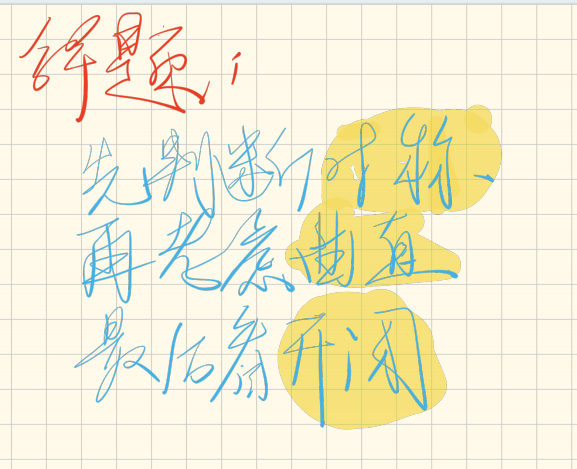 解题：
先判断对称、
再考虑曲直
最后看开闭